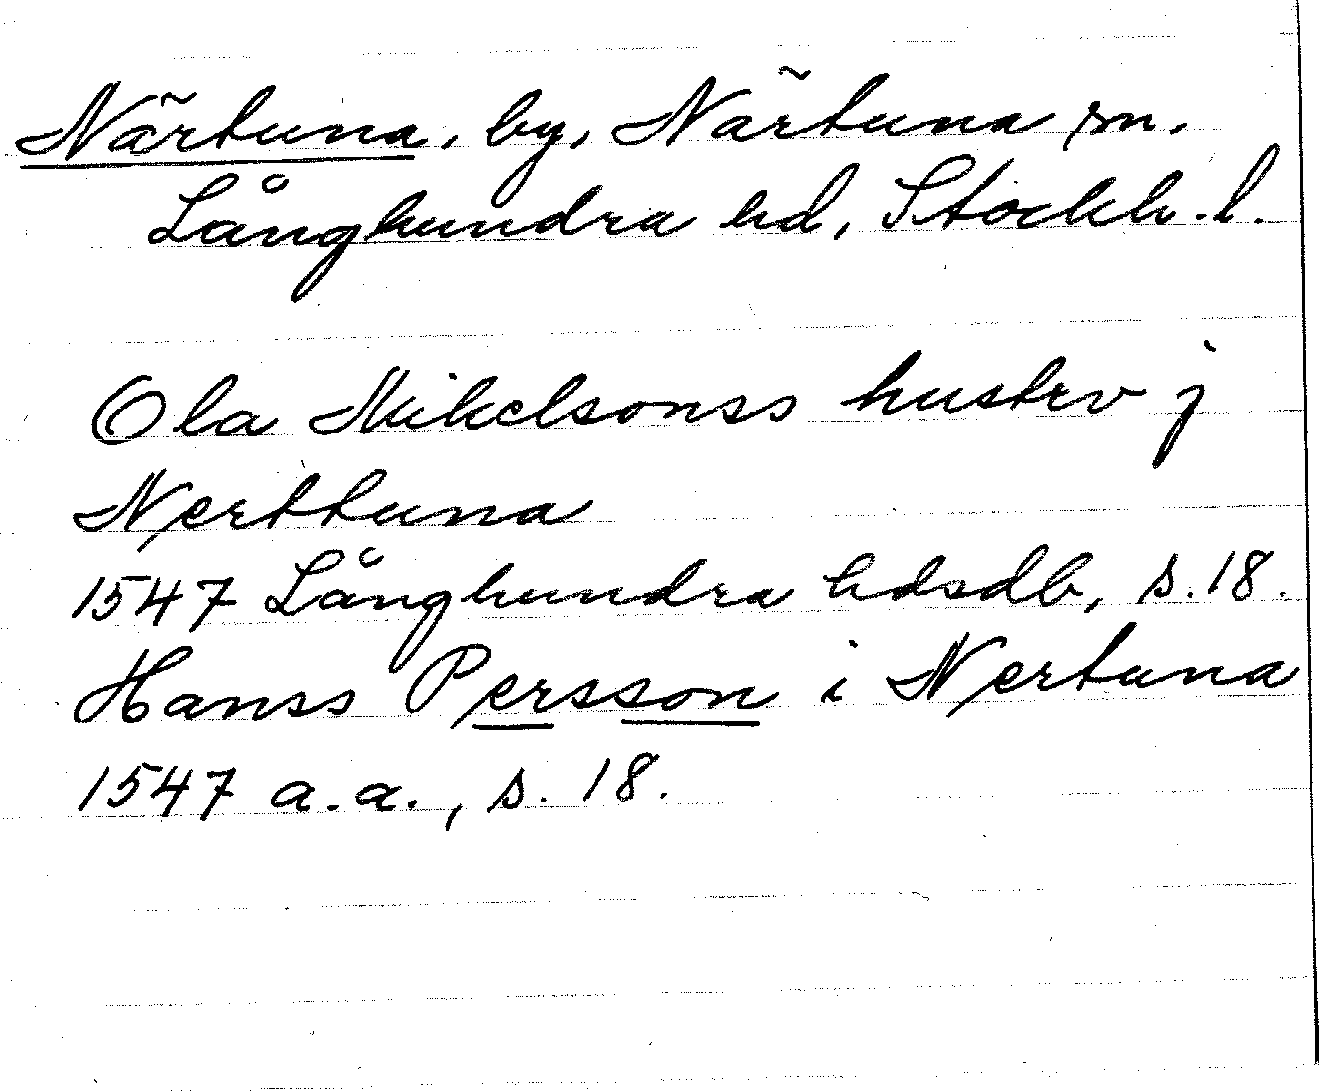 Närtuna, by, Närtuna sn.
Långhundra hd, Stockh. l.
Ola Mikelsonss hustrv j
Nerttuna
1547 Långhundra hdsdb, s. 18.
Hanss Persson i Nertuna
1547 a.a., s. 18.